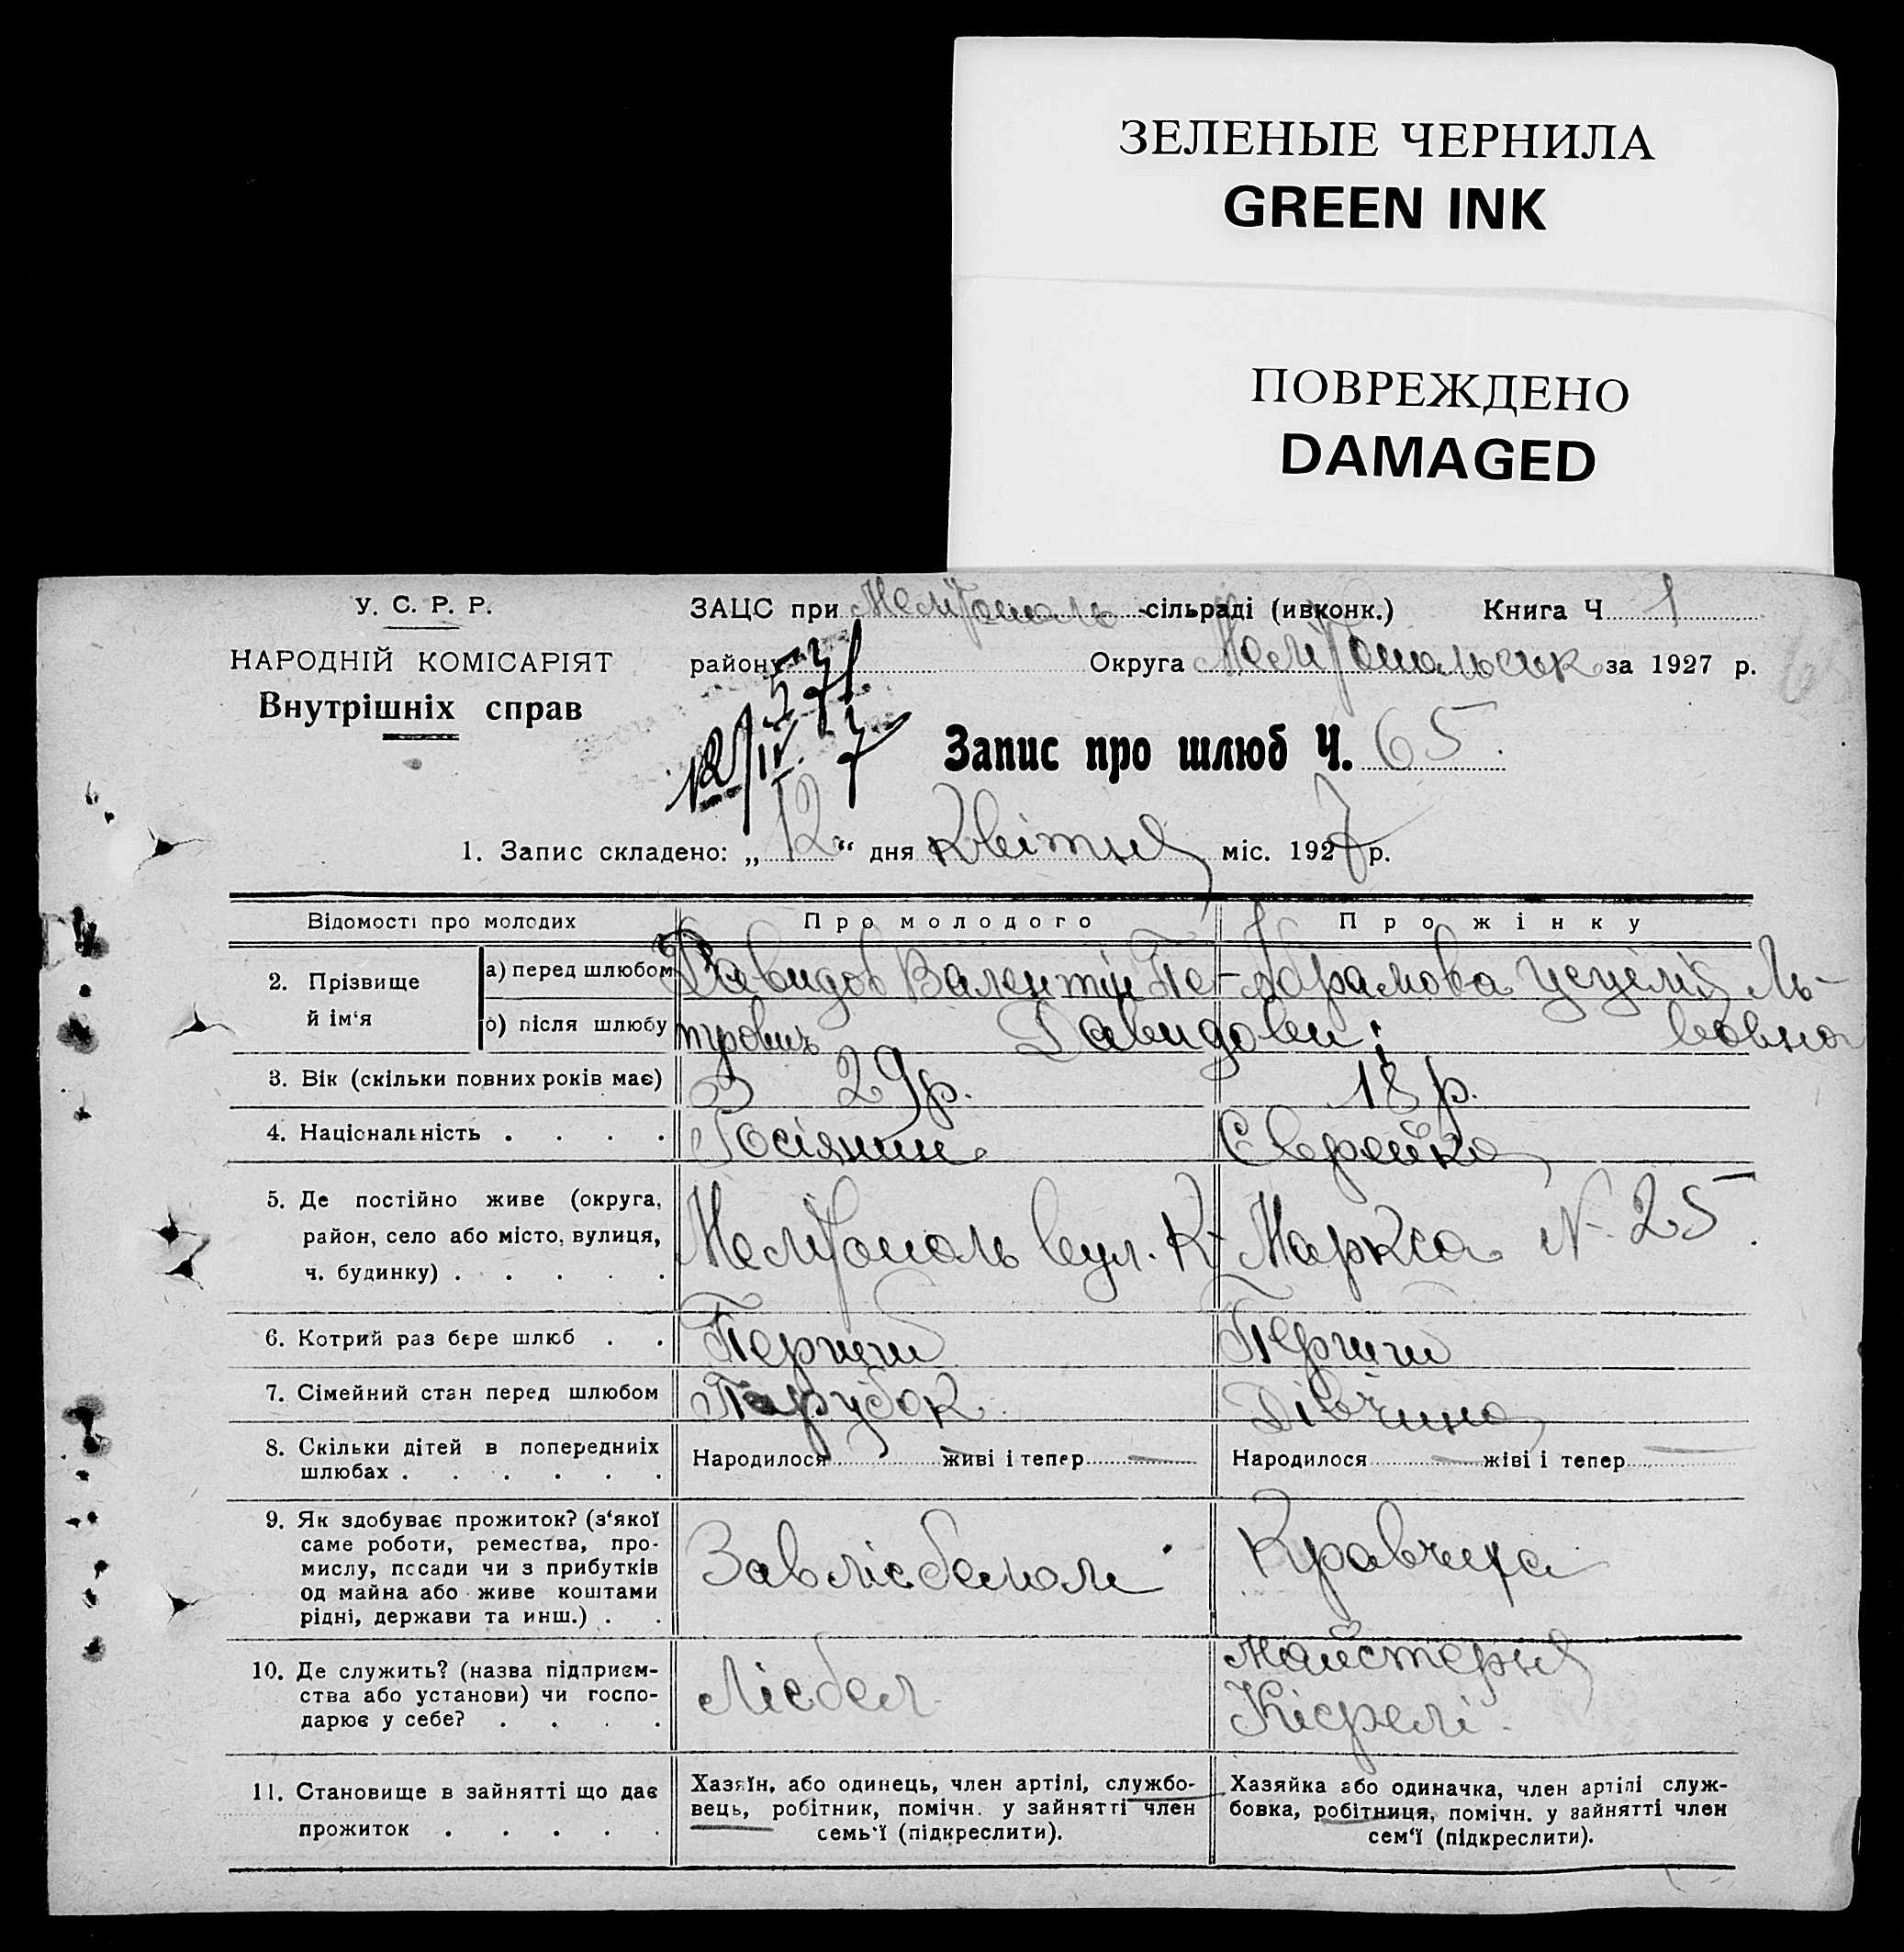 ЗЕЛЕНЫЕ ЧЕРНИЛА
GREEN INK
ПОВРЕЖДЕНО
DAMAGED
У. С. Р. Р.
НАРОДНІЙ КОМІСАРІЯТ
Внутрішніх справ
ЗАЦС при Мелітополь -сільраді (ивконк.) Книга Ч 1
району Округа Мелітопольськ за 1927 р.
12/IV. 27
Запис про шлюб Ч. 65.
1. Запис складено: „ 12 “ дня Квітня міс. 1927 р.
Відомості про молодих Про молодого Про жінку
2. Прізвище й ім‘я
а) перед шлюбом Давидов Валентін Пе- Абрамова Цецілія Ль-
б) після шлюбу трович Давидови; вовна
3. Вік (скільки повних років має) 29 р. 18 р.
4. Національність . . . . Росіянин Єврейка
5. Де постійно живе (округа,
район, село або місто, вулиця, Мелітополь вул. К- Маркса N- 25.
ч. будинку) . . . . .
6. Котрий раз бере шлюб . . Перший Перший
7. Сімейний стан перед шлюбом Парубок Дівчина
8. Скільки дітей в попередниіх
шлюбах . . . . . . Народилося живі і тепер — Народилося — жіві і тепер —
9. Як здобуває прожиток? (з‘якої
саме роботи, ремества, про-
мислу, пссади чи з прибутків Зав Кравчиха
од майна або живе коштами
рідні, держави та инш.) . .
10. Де служить? (назва підприєм- Майстерня
ства або установи) чи госпо-
дарює у себе? . . . .
11. Становище в зайнятті що дає
прожиток . . . . .
Хазяїн, або одинець, член артілі, службо-
вець, робітник, помічн. у зайнятті член
семь‘ї (підкреслити).
Хазяйка або одиначка, член артілі служ-
бовка, робітниця, помічн. у зайнятті член
сем‘ї (підкреслити).